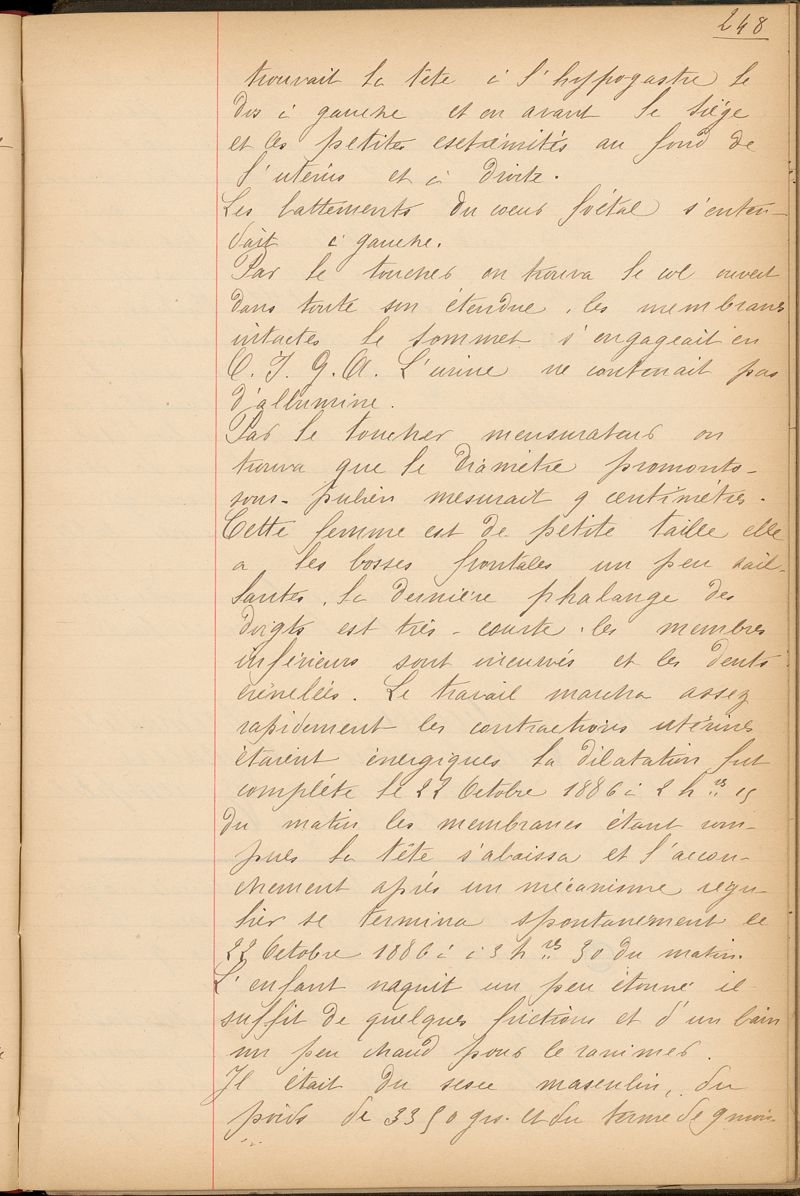 248
trouvait la tête à l'hyppogastre le
dos à gauche et en avant le siége
et les petites esctrémités au fond de
l'utérus et à droite.
Les battements du coeur foétal s'enten-
dait à gauche.
Par le toucher on trouva le col ouvert
dans toute son étendue, les membranes
intactes le sommet s'engageait en
O. I. G. A. L'urine ne contenait pas
d'albumine.
Par le toucher mensurateur on
trouva que le diamètre promonto-
sous-pubien mesurait 9 centimétres.
Cette femme est de petite taille elle
a les bosses frontales un peu sail-
lantes, la dernière phalange des
doigts est très-courte, les membres
inférieurs sont incurvés et les dents
crénelées. Le travail marcha assez
rapidement les contractions utérines
étaient énergiques la dilatation fut
compléte le 22 Octobre 1886 à 2 h res 15
du matin les membranes étant rom-
pues la tête s'abaissa et l'accou-
chement après un mécanisme régu-
lier se termina spontanément le
22 Octobre 1886 à à 3 h res 30 du matin.
L'enfant naquit un peu étonné il
suffit de quelques frictions et d'un bain
un peu chaud pour le ranimer.
Il était du sesce masculin, du
poids de 3350 grs. et du terme de 9 mois